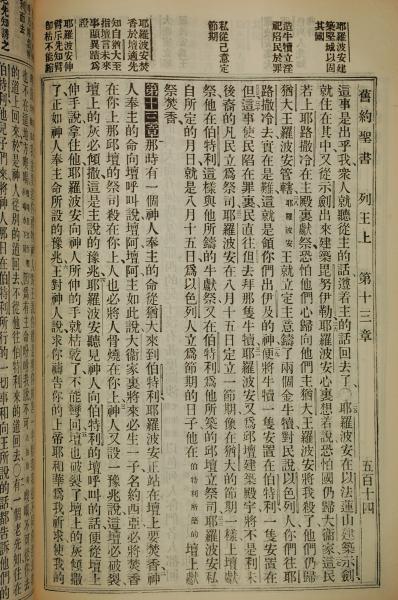 舊約聖書 列王上 第十三章 五百十四
耶羅波安建
築堅城以固
其國
造牛犢立淫
祀陷民於罪
私從己意定
節期
耶羅波安焚
香於壇適先
知自猶大至
指壇言未來
事顯異蹟爲
證
耶羅波安伸
臂斥先知臂
卽枯不能縮
這事是出乎我衆人就聽從主的話遵着主的話回去了○耶羅波安在以法蓮山建築示劍
就住在其中又從示劍出來建築毘努伊勒耶羅波安心裏想若說恐怕國仍歸大衛家這民
若上耶路撒冷去在主殿裏獻祭恐怕他們心歸向他們主猶大王羅波安將我殺了他們仍歸
猶大王羅波安管轄耶羅波安王就立定主意鑄了兩個金牛犢對民說以色列人你們往耶
路撒冷去實在是難這就是領你們出伊及的神便將牛犢一隻安置在伯特利一隻安置在
但這事使民陷在罪裏民直往但去拜那隻牛犢耶羅波安又爲邱壇建築殿宇將不是利未
後裔的凡民立爲祭司耶羅波安在八月十五日定立一節期像在猶大的節期一樣上壇獻
祭他在伯特利這樣與他所鑄的牛獻祭又在伯特利爲他所築的邱壇立祭司耶羅波安私
自所定的月日就是八月十五日爲以色列人立爲節期的日子他在伯特利所築的壇上獻
祭焚香
第十三章 那時有一個神人奉主的命從猶大來到伯特利耶羅波安正站在壇上要焚香神
人奉主的命向壇呼叫說壇阿壇阿主如此說大衛家裏將來必生一子名約西亞必將焚香
在你上那邱壇的祭司殺在你上人也必將人骨燒在你上神人又設一豫兆說這壇必破裂
壇上的灰必傾撒這是主說的豫兆耶羅波安聽見神人向伯特利的壇呼叫的話便從壇上
伸手說拿住他耶羅波安向神人所伸的手就枯乾了不能彎回壇也破裂了壇上的灰傾撒
了正如神人奉主命所設的豫兆王對神人說求你禱告你的上帝耶和華爲我祈求使我的
的道回來於是神人從別的道回去不從他往伯特利來的道回去○有一個老先知住在
伯特利他兒子們來將神人那日在伯特利所行的一切事和向王所說的話都告訴他們的